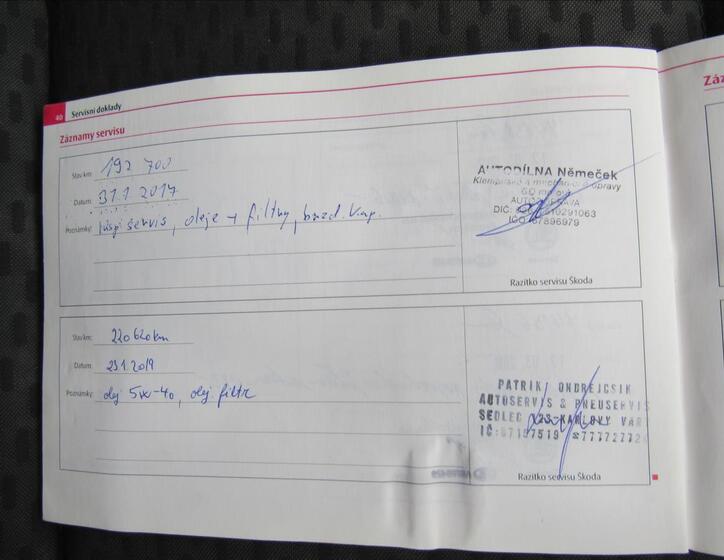 40 Servisní doklady
Záz
Záznamy servisu
Stav km: 192 700
Datum: 31.1 2017
Poznámky: servis, oleje + filtry, brzd. kap.
AUTODÍLNA Němeček
Klempířské a mechanické opravy
DIČ:
IČO
Razítko servisu Škoda
Stav km: 220 620 km
Datum: 23.1.2019
Poznámky: olej 5W-40, olej. filtr
PATRIK ONDREJCSIK
AUTOSERVIS & PNEUSERVIS
SEDLEC KARLOVY VAR
IČ:
Razítko servisu Škoda